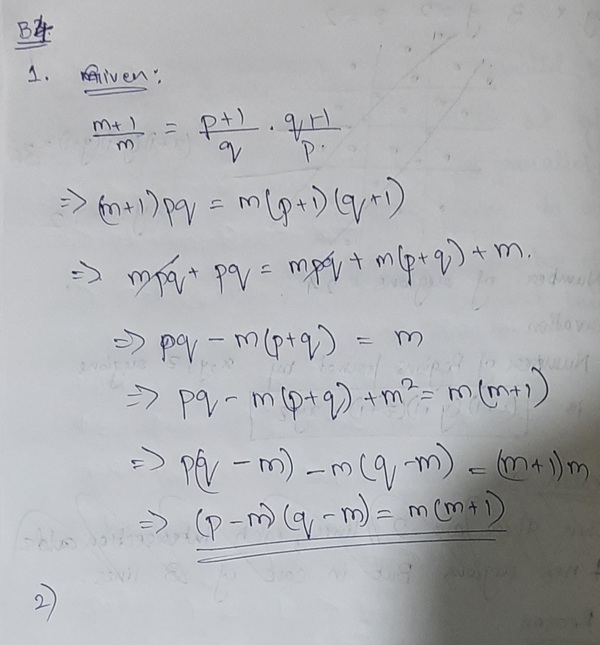 B4.
1. Given:
(m+1)/m = (p+1)/q · (q+1)/p.
=> (m+1)pq = m(p+1)(q+1)
=> mpq + pq = mpq + m(p+q) + m.
=> pq - m(p+q) = m
=> pq - m(p+q) + m² = m(m+1)
=> p(q - m) - m(q - m) = (m+1)m
=> (p-m)(q-m) = m(m+1)
2)